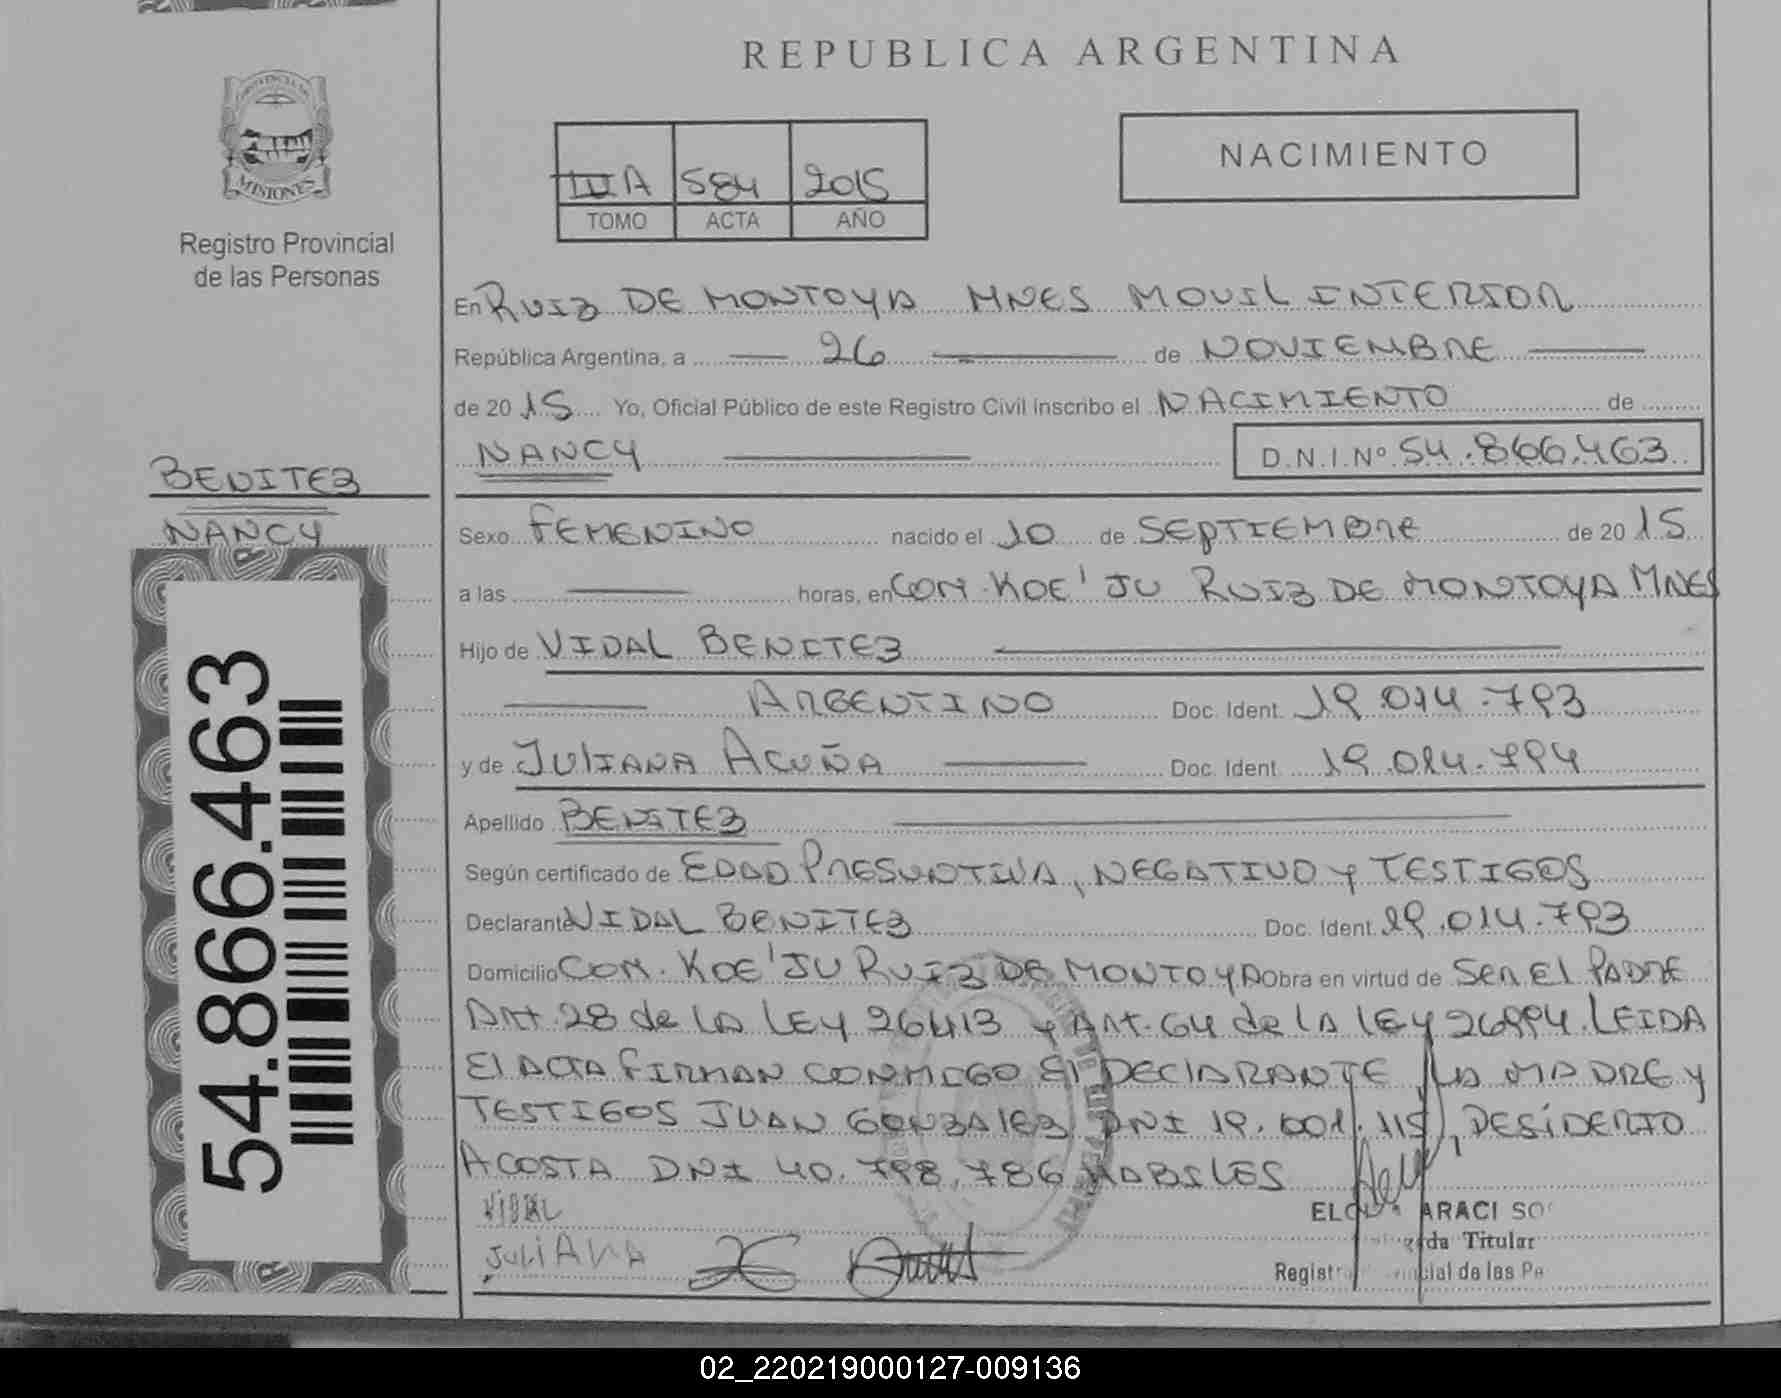 REPUBLICA ARGENTINA
MISIONES
Registro Provincial
de las Personas
III A 584 2015
TOMO ACTA AÑO
NACIMIENTO
En RUIZ DE MONTOYA MNES MOVIL INTERIOR
República Argentina, a 26 de NOVIEMBRE
de 20 15 Yo, Oficial Público de este Registro Civil inscribo el NACIMIENTO de
NANCY D.N.I.Nº 54.866.463
BENITEZ
NANCY
54.866.463
Sexo FEMENINO nacido el 10 de SEPTIEMBRE de 20 15
a las horas, en COM. KOE'JU RUIZ DE MONTOYA MNES
Hijo de VIDAL BENITEZ
ARGENTINO Doc. Ident. 19.014.793
y de JULIANA ACUÑA Doc. Ident. 19.014.794
Apellido BENITEZ
Según certificado de EDAD PRESUNTIVA, NEGATIVO y TESTIGOS
Declarante VIDAL BENITEZ Doc. Ident. 19.014.793
Domicilio COM. KOE'JU RUIZ DE MONTOYA Obra en virtud de SER EL PADRE
ART. 28 de LA LEY 26413 y ART. 64 de LA LEY 26994. LEIDA
El ACTA FIRMAN CONMIGO El DECLARANTE, LA MADRE y
TESTIGOS JUAN GONZALEZ DNI 19.001.115, DESIDERIO
ACOSTA DNI 40.798.786 HABILES
VIDAL
JULIANA
ARACI
Titular
de las
02_220219000127-009136